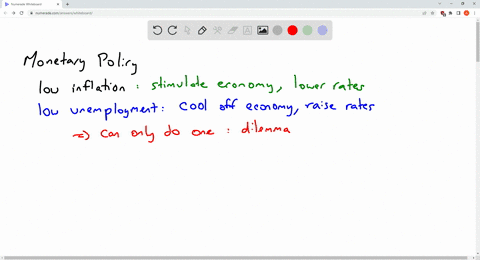 Numerade
numerade.com/answers/whiteboard/
Monetary Policy
low inflation : stimulate economy, lower rates
low unemployment: cool off economy, raise rates
=> can only do one : dilemma